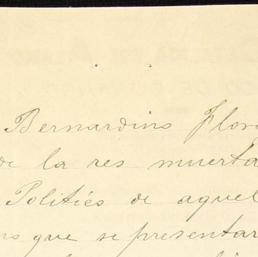 Bernardino Flor
de la res muerta
Politiés de aquel
que se presentar